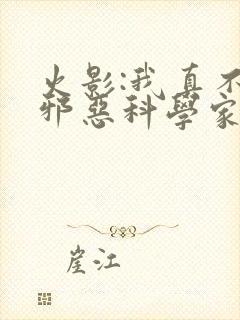 火影:我真不
邪惡科學家
崖江